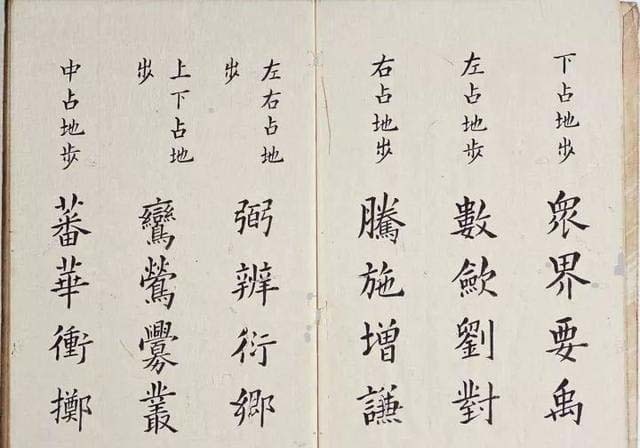 下占地步
眾界要禹
左占地步
數斂劉對
右占地步
騰施增謙
左右占地
步
弼辨衍鄉
上下占地
步
鸞鶯釁叢
中占地步
蕃華衝擲